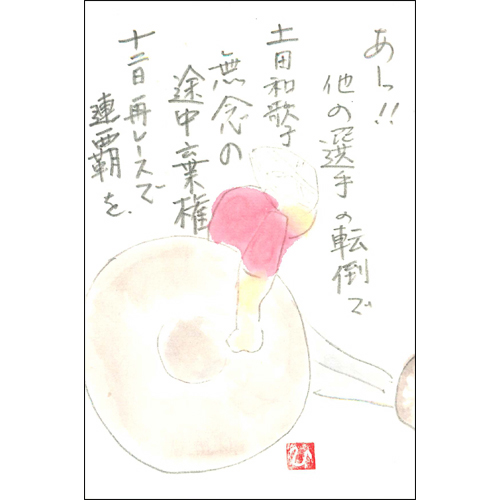 あっ!!
他の選手の転倒で
土田和歌子
無念の
途中棄権
十二日再レースで
連覇を、